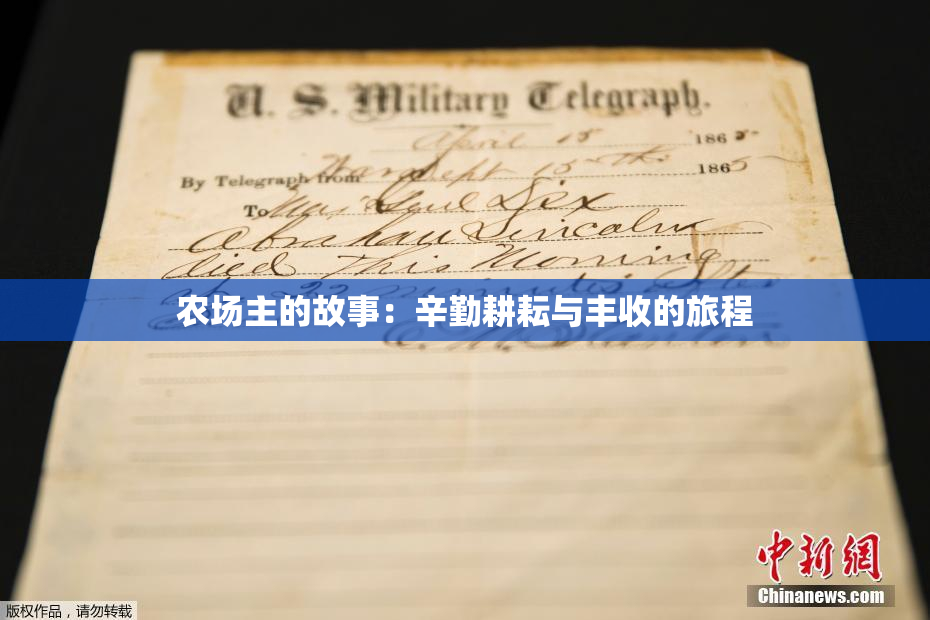 U. S. Military Telegraph.
April 15 1865
By Telegraph from War Dept 15th 1865
To Maj Genl Dix
Abraham Lincoln
died This Morning
at 22 minutes after
农场主的故事：辛勤耕耘与丰收的旅程
E. M. Stanton
中新網
Chinanews.com
版权作品，请勿转载